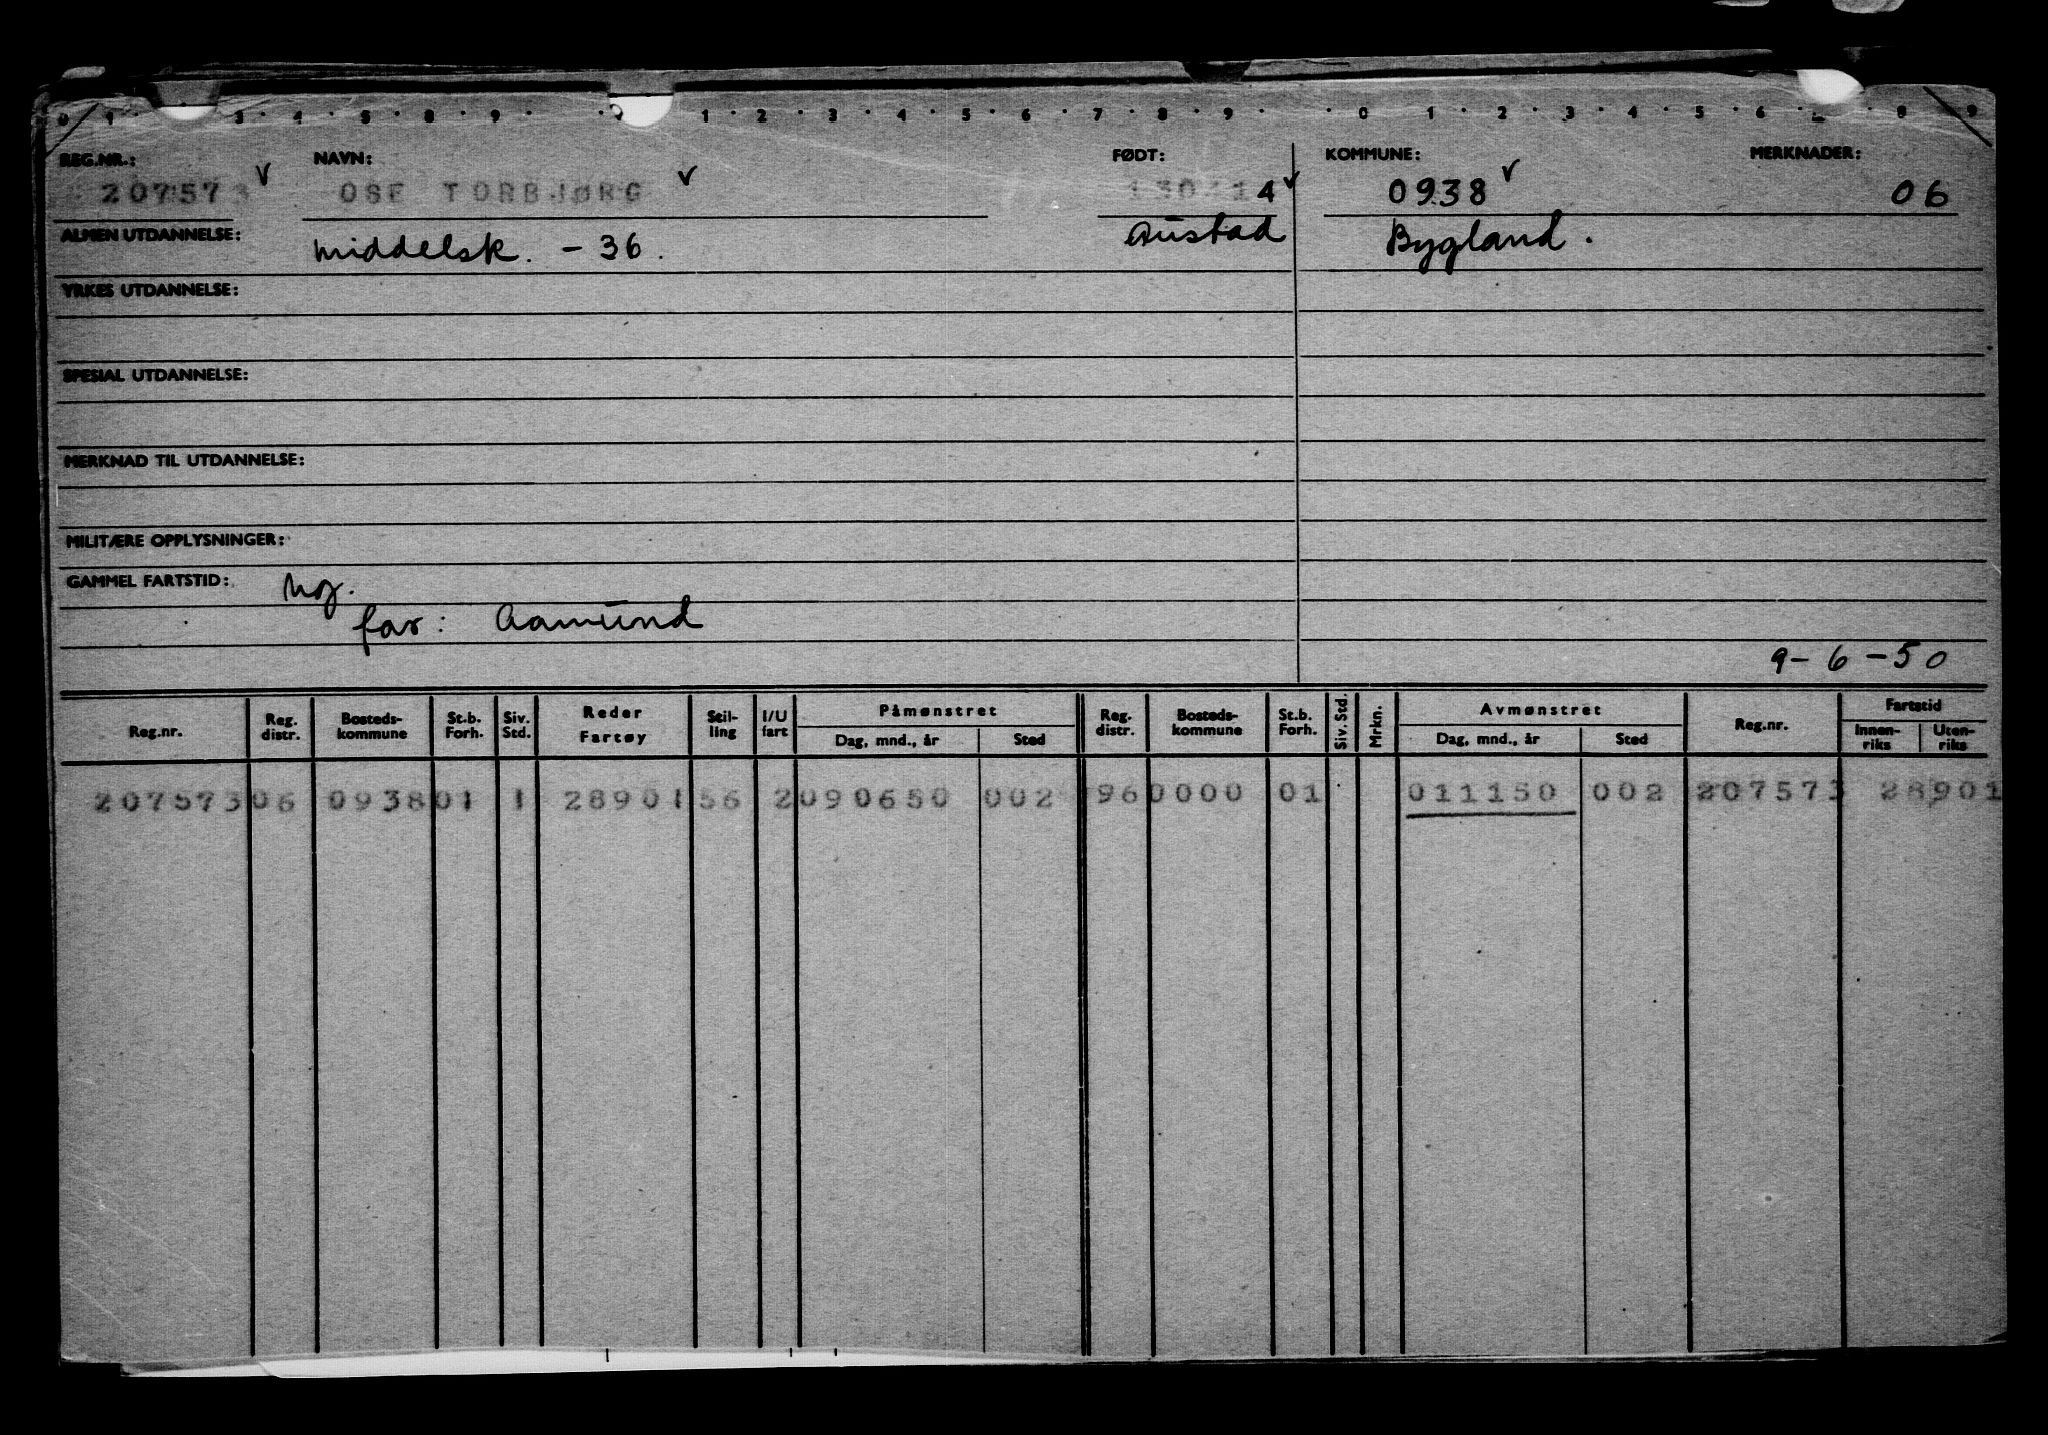 0 1 3 4 5 8 9 0 1 2 3 4 5 6 7 8 9 0 1 2 3 4 5 6 8 9
REG.NR.: NAVN: FØDT: KOMMUNE: MERKNADER:
207573 v OSE TORBJØRG v 4 v 0938 v 06
ALMEN UTDANNELSE: middelsk. - 36. Austad Bygland.
YRKES UTDANNELSE:
SPESIAL UTDANNELSE:
MERKNAD TIL UTDANNELSE:
MILITÆRE OPPLYSNINGER:
GAMMEL FARTSTID:
far: Aamund
9-6-50
Reg.nr. Reg. distr. Bosteds-kommune St.b. Forh. Siv. Std. Reder Fartøy Stil-ling I/U fart Påmønstret Dag, mnd., år Sted Reg. distr. Bosteds-kommune St.b. Forh. Siv. Std. Mrkn. Avmønstret Dag, mnd., år Sted Reg.nr. Fartstid Innen-riks Uten-riks
207573 06 0938 01 1 28901 56 2 090650 002 96 0000 01 011150 002 207573 28901